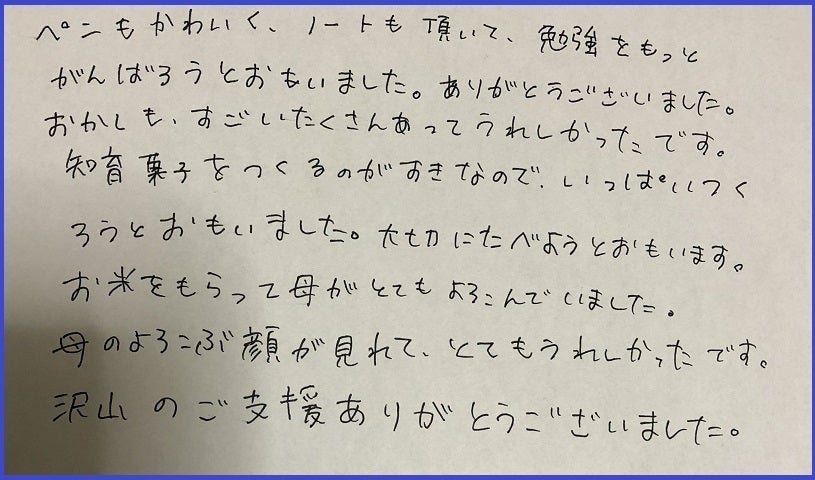 ペンもかわいく、ノートも頂いて、勉強をもっと
がんばろうとおもいました。ありがとうございました。
おかしも、すごいたくさんあってうれしかったです。
知育菓子をつくるのがすきなので、いっぱいつく
ろうとおもいました。大切にたべようとおもいます。
お米をもらって母がとてもよろこんでいました。
母のよろこぶ顔が見れて、とてもうれしかったです。
沢山のご支援ありがとうございました。